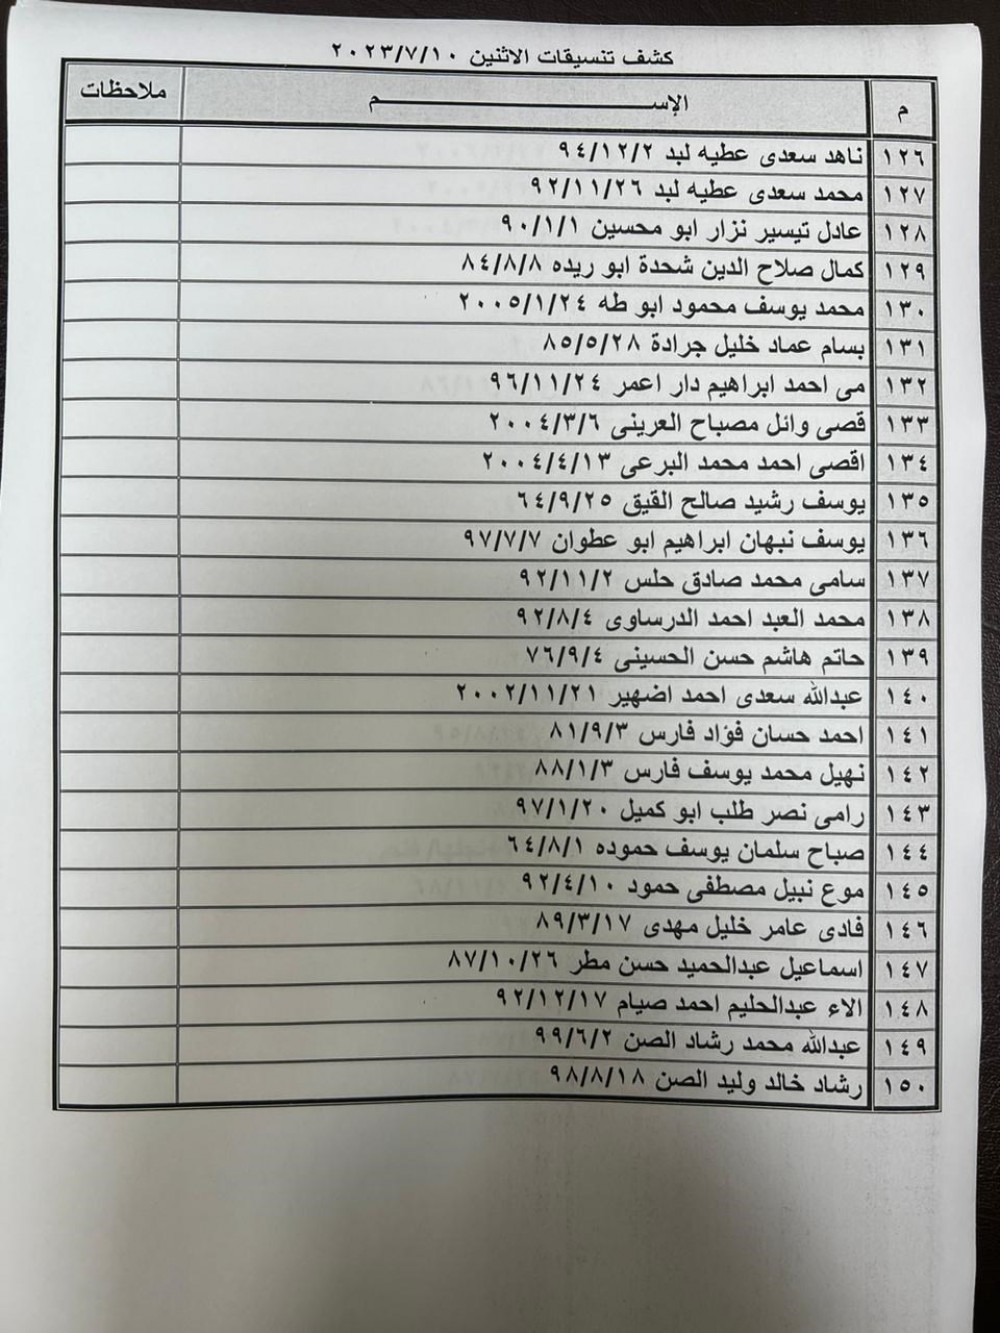 كشف تنسيقات الاثنين ٢٠٢٣/٧/١٠
م الإســـــم ملاحظات
١٢٦ ناهد سعدى عطيه لبد ٩٤/١٢/٢
١٢٧ محمد سعدى عطيه لبد ٩٢/١١/٢٦
١٢٨ عادل تيسير نزار ابو محسين ٩٠/١/١
١٢٩ كمال صلاح الدين شحدة ابو ريده ٨٤/٨/٨
١٣٠ محمد يوسف محمود ابو طه ٢٠٠٥/١/٢٤
١٣١ بسام عماد خليل جرادة ٨٥/٥/٢٨
١٣٢ مى احمد ابراهيم دار اعمر ٩٦/١١/٢٤
١٣٣ قصى وائل مصباح العرينى ٢٠٠٤/٣/٦
١٣٤ اقصى احمد محمد البرعى ٢٠٠٤/٤/١٣
١٣٥ يوسف رشيد صالح القيق ٦٤/٩/٢٥
١٣٦ يوسف نبهان ابراهيم ابو عطوان ٩٧/٧/٧
١٣٧ سامى محمد صادق حلس ٩٢/١١/٢
١٣٨ محمد العبد احمد الدرساوى ٩٢/٨/٤
١٣٩ حاتم هاشم حسن الحسينى ٧٦/٩/٤
١٤٠ عبدالله سعدى احمد اضهير ٢٠٠٢/١١/٢١
١٤١ احمد حسان فؤاد فارس ٨١/٩/٣
١٤٢ نهيل محمد يوسف فارس ٨٨/١/٣
١٤٣ رامى نصر طلب ابو كميل ٩٧/١/٢٠
١٤٤ صباح سلمان يوسف حموده ٦٤/٨/١
١٤٥ موع نبيل مصطفى حمود ٩٢/٤/١٠
١٤٦ فادى عامر خليل مهدى ٨٩/٣/١٧
١٤٧ اسماعيل عبدالحميد حسن مطر ٨٧/١٠/٢٦
١٤٨ الاء عبدالحليم احمد صيام ٩٢/١٢/١٧
١٤٩ عبدالله محمد رشاد الصن ٩٩/٦/٢
١٥٠ رشاد خالد وليد الصن ٩٨/٨/١٨